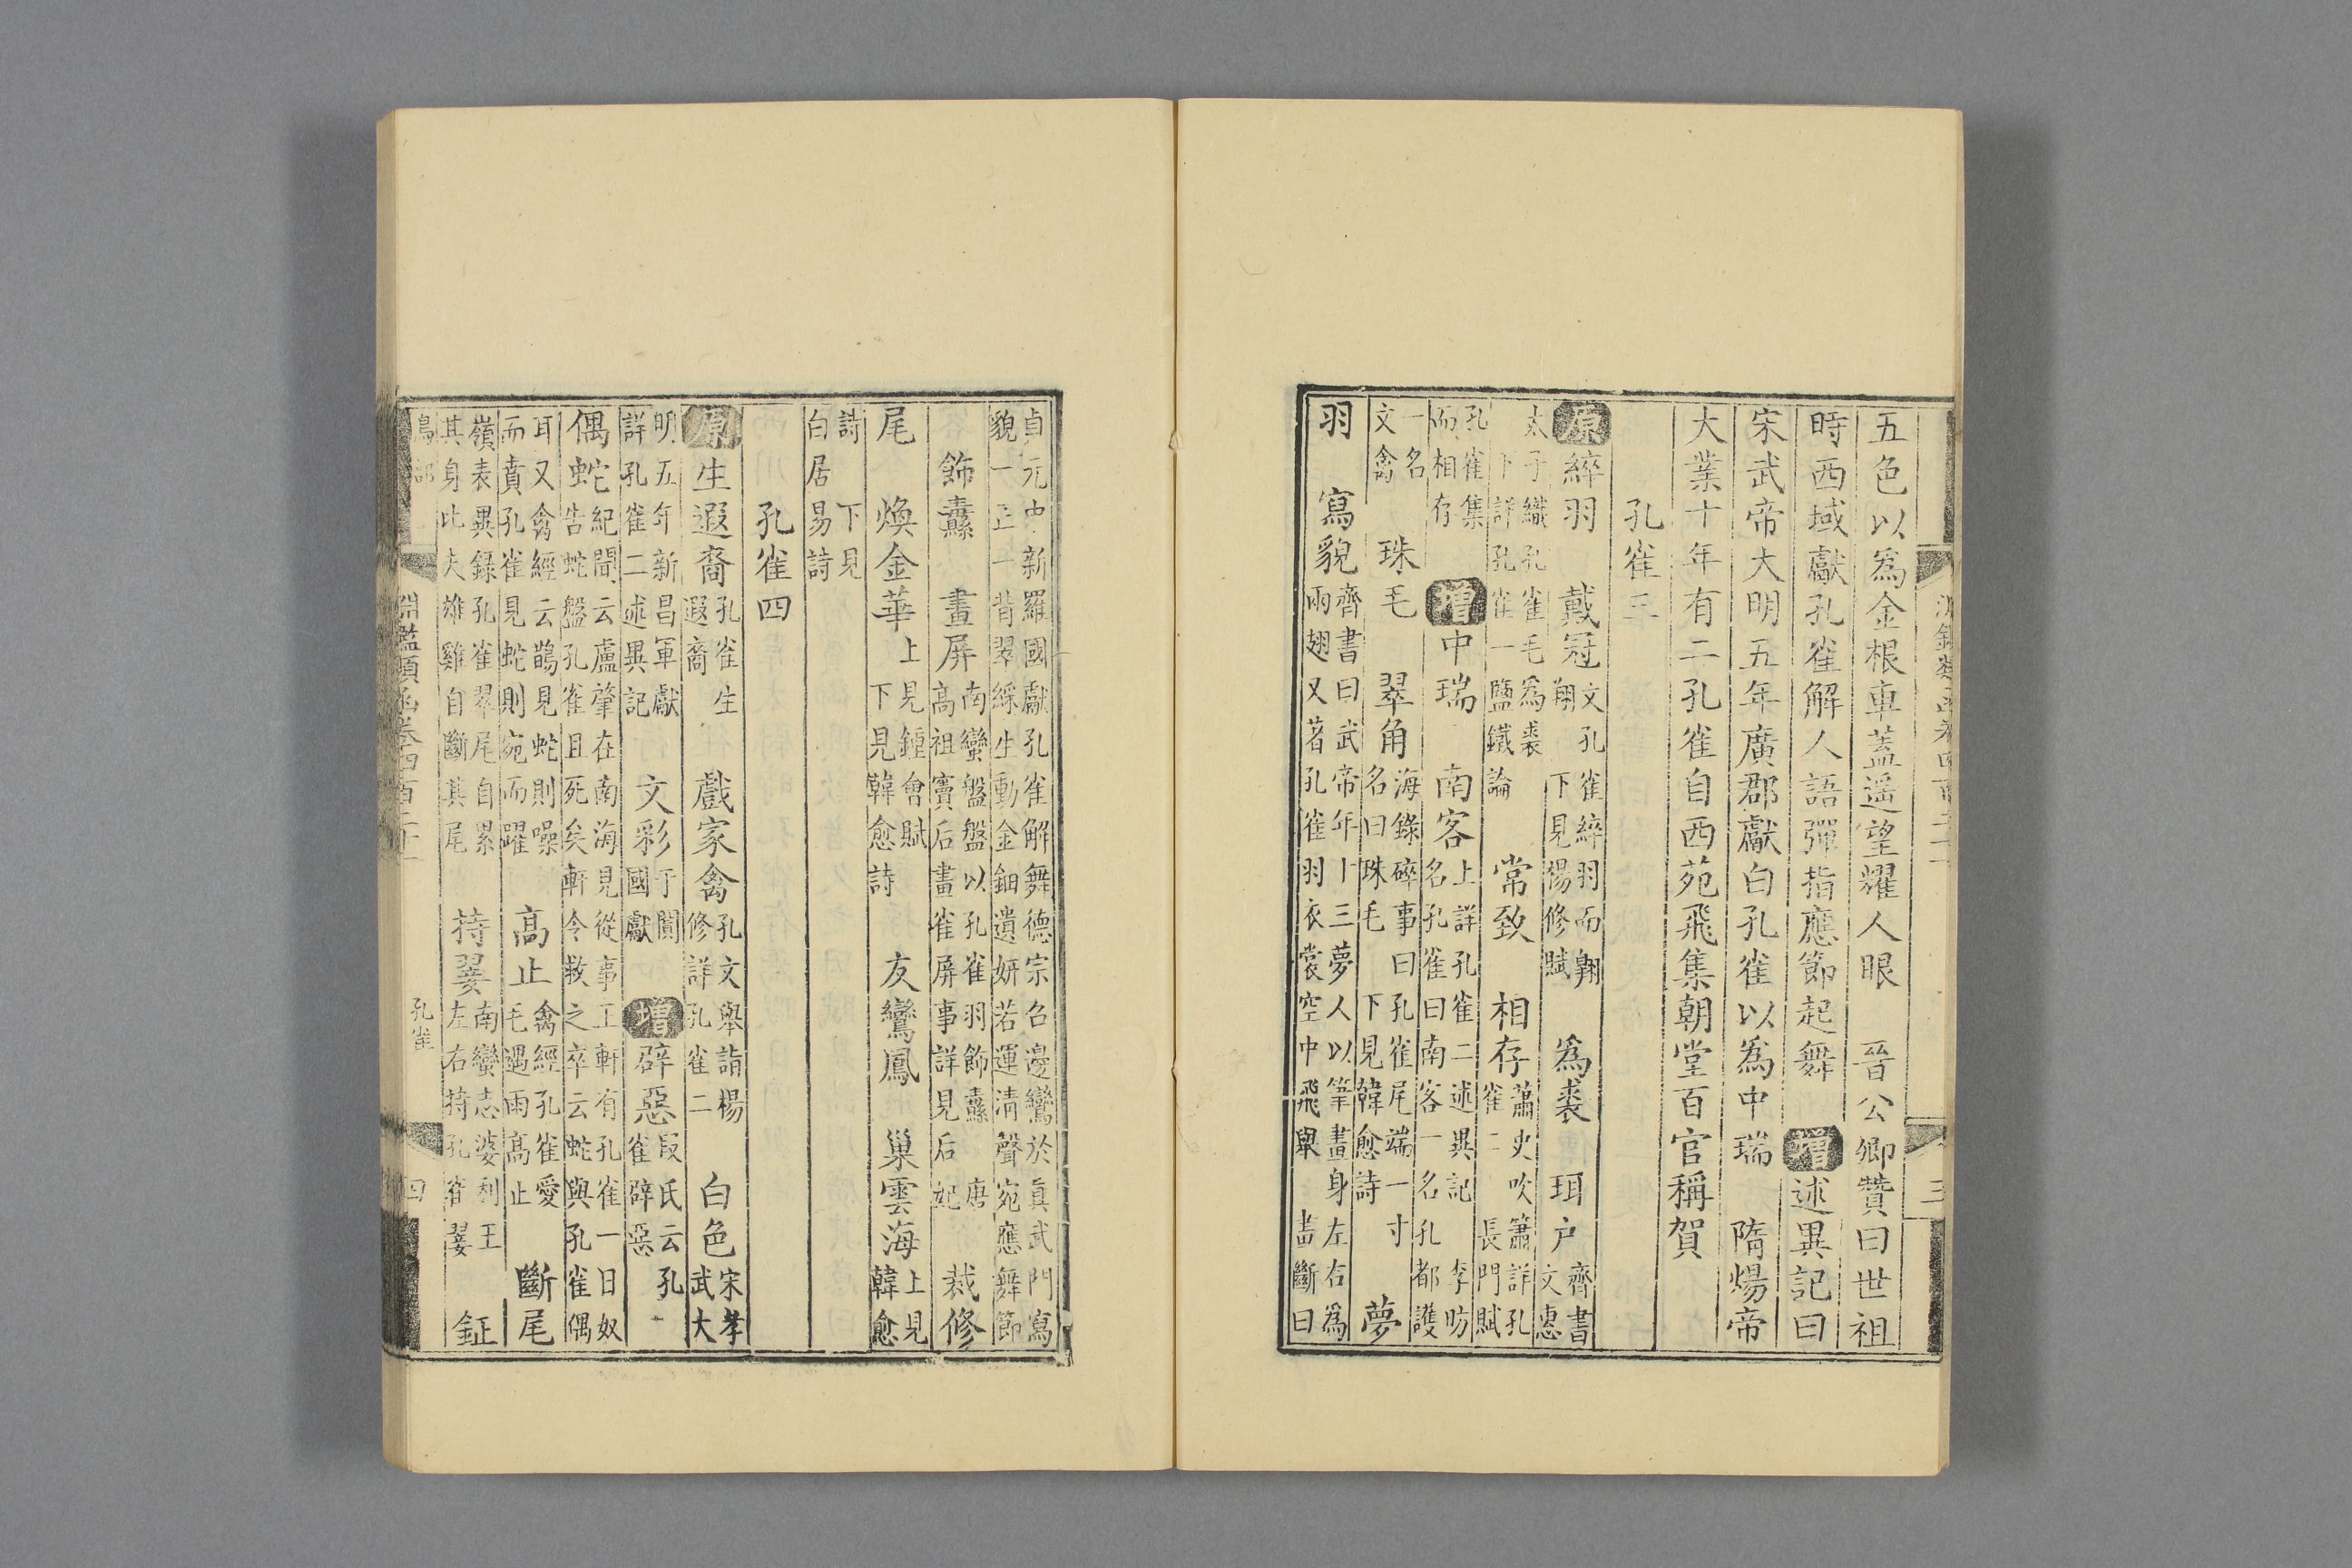 五色以爲金根車蓋遥望耀人眼　晉公卿贊曰世祖
時西域獻孔雀解人語彈指應節起舞　增述異記曰
宋武帝大明五年廣郡獻白孔雀以爲中瑞　隋煬帝
大業十年有二孔雀自西苑飛集朝堂百官稱賀
孔雀三
原綷羽　戴冠文孔雀綷羽而翱翔　下見楊修賦　爲裘　珥户齊書文惠
太子織孔雀毛爲裘下詳孔雀一鹽鐵論　常致　相存蕭史吹簫詳孔雀二　長門賦
孔雀集而相存　增中瑞　南客上詳孔雀二述異記　李昉名孔雀曰南客一名孔都護
一名文禽　珠毛　翠角海錄碎事曰孔雀尾端一寸名曰珠毛　下見韓愈詩　夢
羽　寫貌齊書曰武帝年十三夢人以筆畫身左右爲兩翅又著孔雀羽衣裳空中飛舉　畵斷曰
貞元中新羅國獻孔雀解舞德宗召邊鸞於真武門寫貌一正一背翠綵生動金鈿遺妍若運清聲宛應舞節
飾纛　畫屏南蠻盤盤以孔雀羽飾纛　唐高祖竇后畫雀屏事詳見后妃　裁修
尾　煥金華上見鍾會賦下見韓愈詩　友鸞鳳　巢雲海上見韓愈
詩　下見白居易詩
孔雀四
原生遐裔孔雀生遐裔　戲家禽孔文舉詣楊修詳孔雀二　白色宋孝武大
明五年新昌軍獻詳孔雀二述異記　文彩于闐國獻　增辟惡段氏云孔雀辟惡
偶蛇紀聞云盧肇在南海見從事王軒有孔雀一日奴告蛇盤孔雀且死矣軒令救之卒云蛇與孔雀偶
耳又禽經云鵲見蛇則噪而賁孔雀見蛇則宛而躍　高止禽經孔雀愛毛遇雨高止　斷尾
嶺表異錄孔雀翠尾自累其身比夫雄雞自斷其尾　持翣南蠻志婆利王左右持孔雀翣　鉦
鳥部　淵鑑類函卷四百二十一　孔雀　四